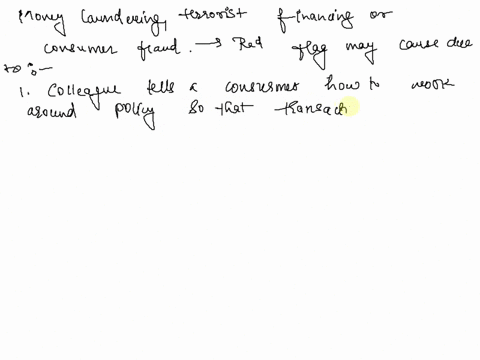 Money laundering, terrorist financing or
consumer fraud. → Red flag may cause due
to :-
1. Colleague tells a consumer how to work
around policy so that transac